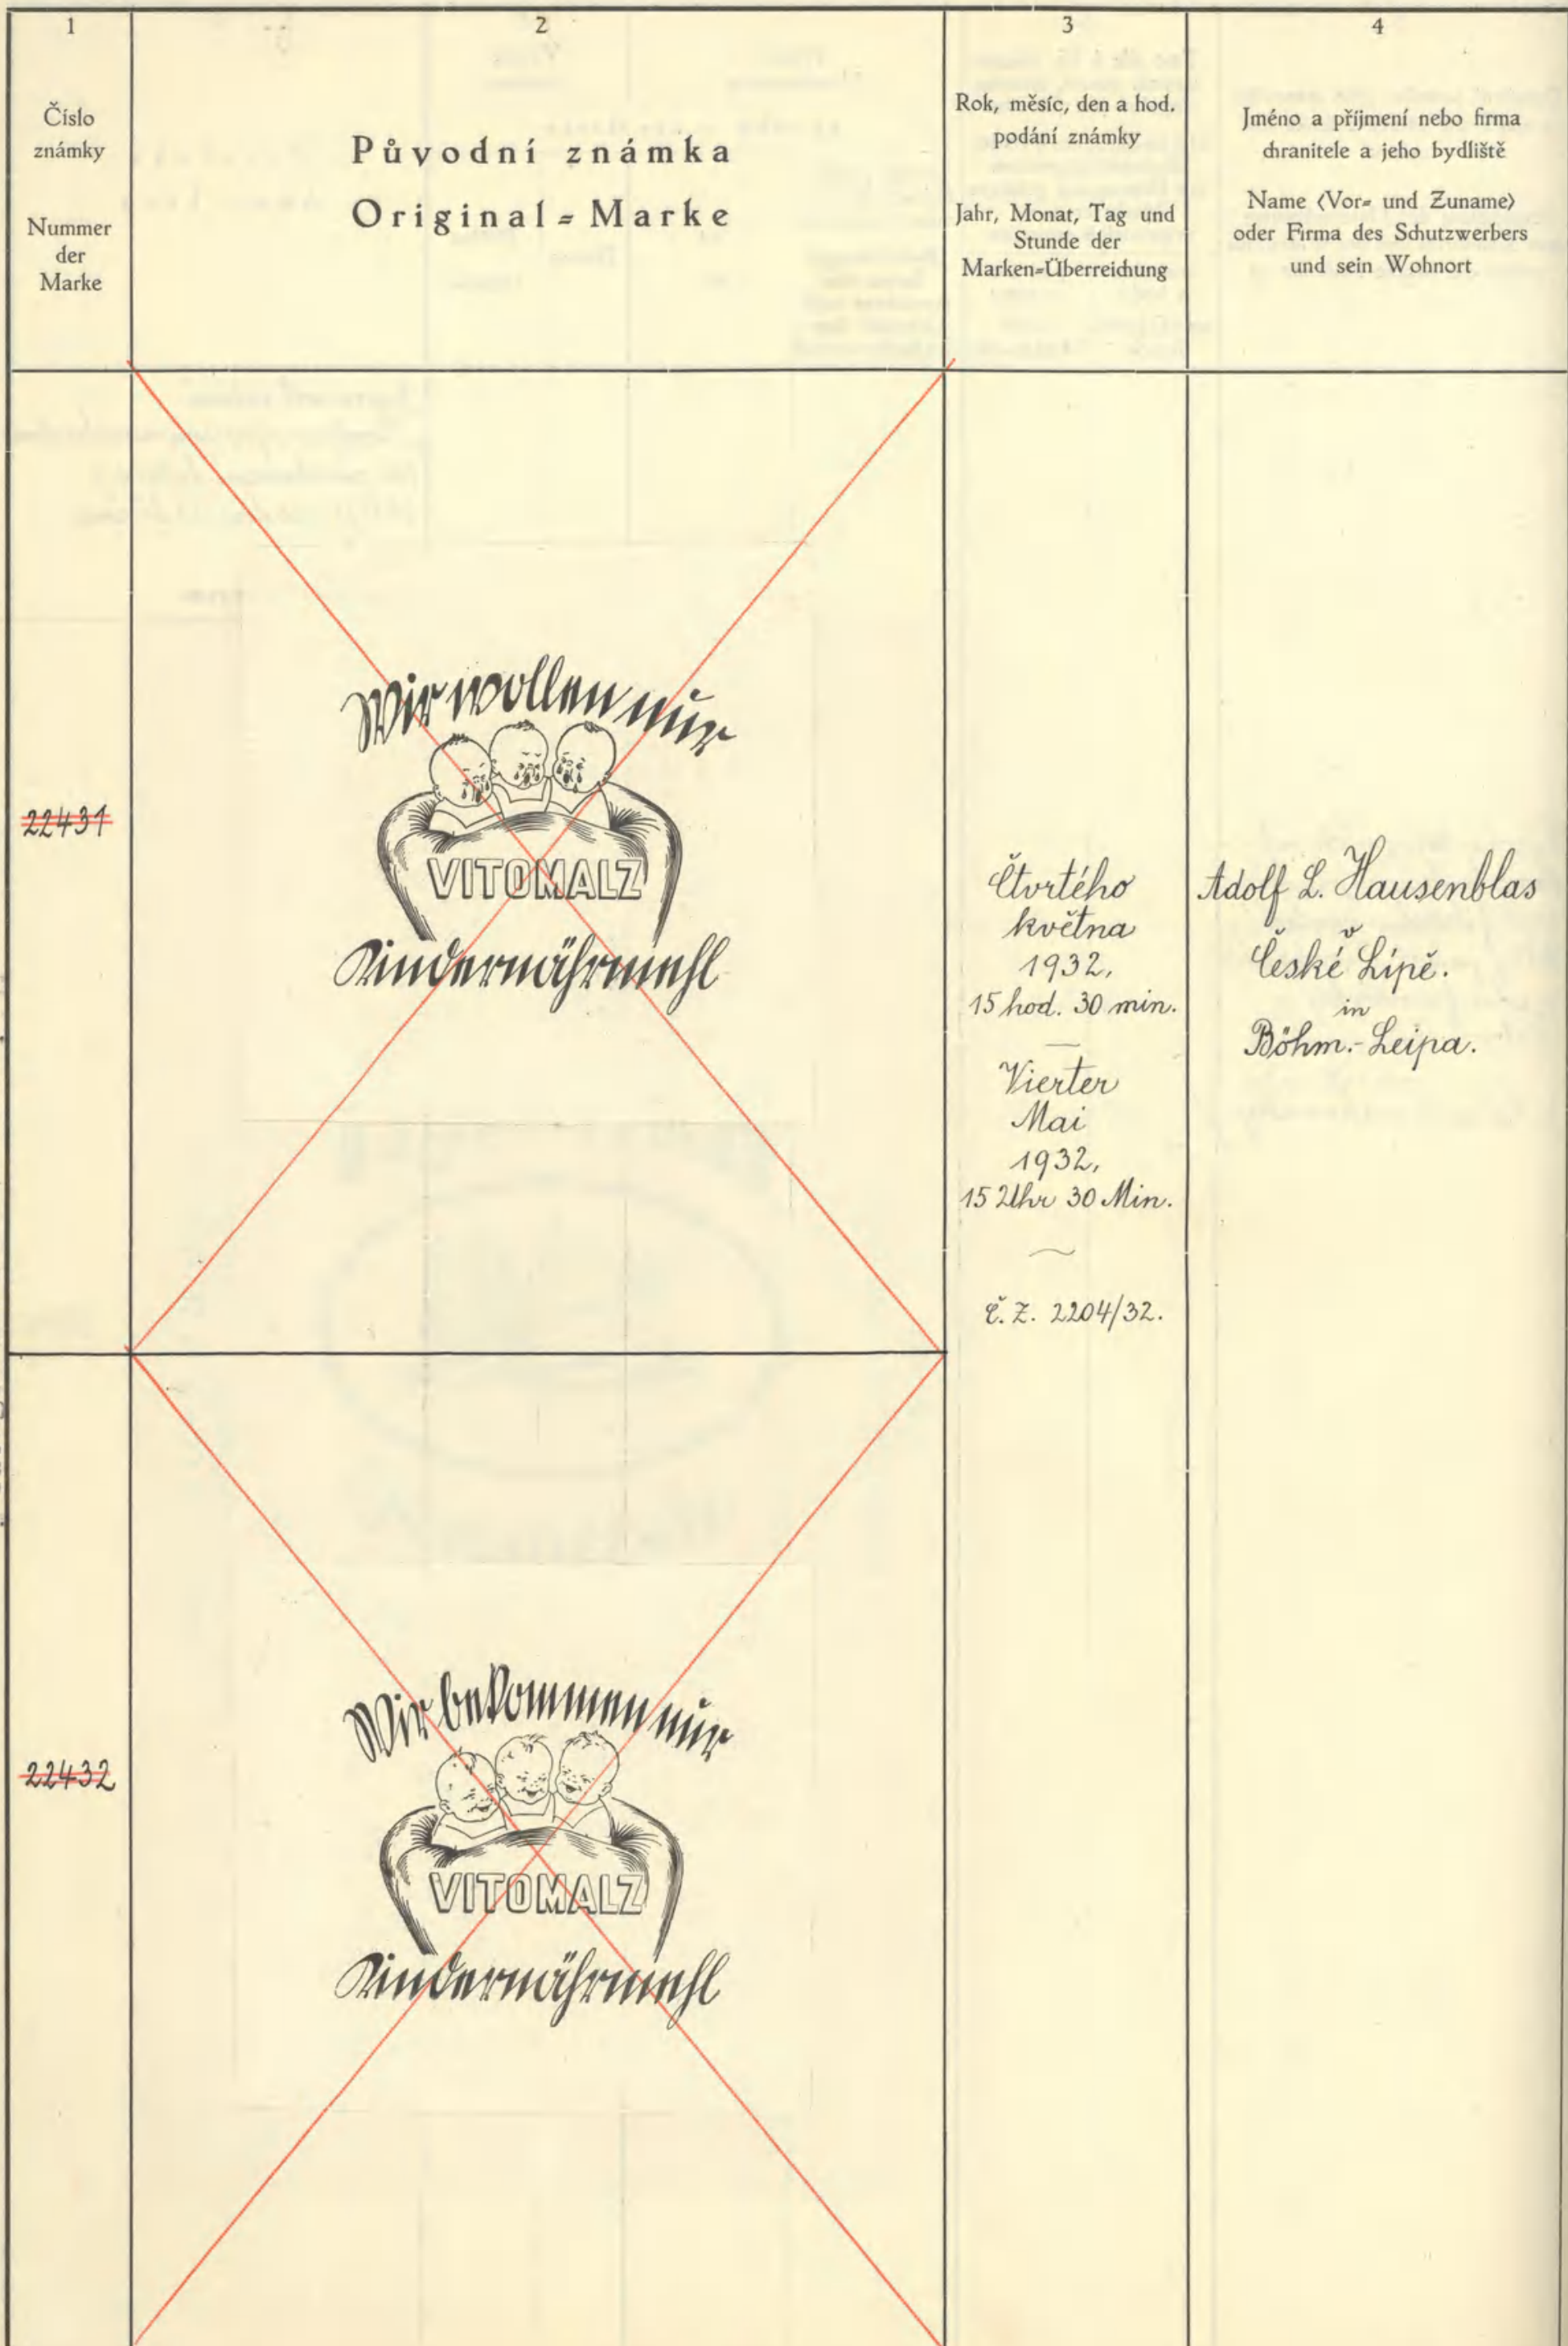 1
Číslo
známky
Nummer
der
Marke
2
Původní známka
Original-Marke
3
Rok, měsíc, den a hod.
podání známky
Jahr, Monat, Tag und
Stunde der
Marken-Überreichung
4
Jméno a příjmení nebo firma
chranitele a jeho bydliště
Name (Vor- und Zuname)
oder Firma des Schutzwerbers
und sein Wohnort
22431
Wir wollen nur
VITOMALZ
Kindernährmehl
Čtvrtého
května
1932,
15 hod. 30 min.
Vierter
Mai
1932,
15 Uhr 30 Min.
č. ž. 2204/32.
Adolf L. Hausenblas
v
České Lípě.
in
Böhm.-Leipa.
22432
Wir bekommen nur
VITOMALZ
Kindernährmehl